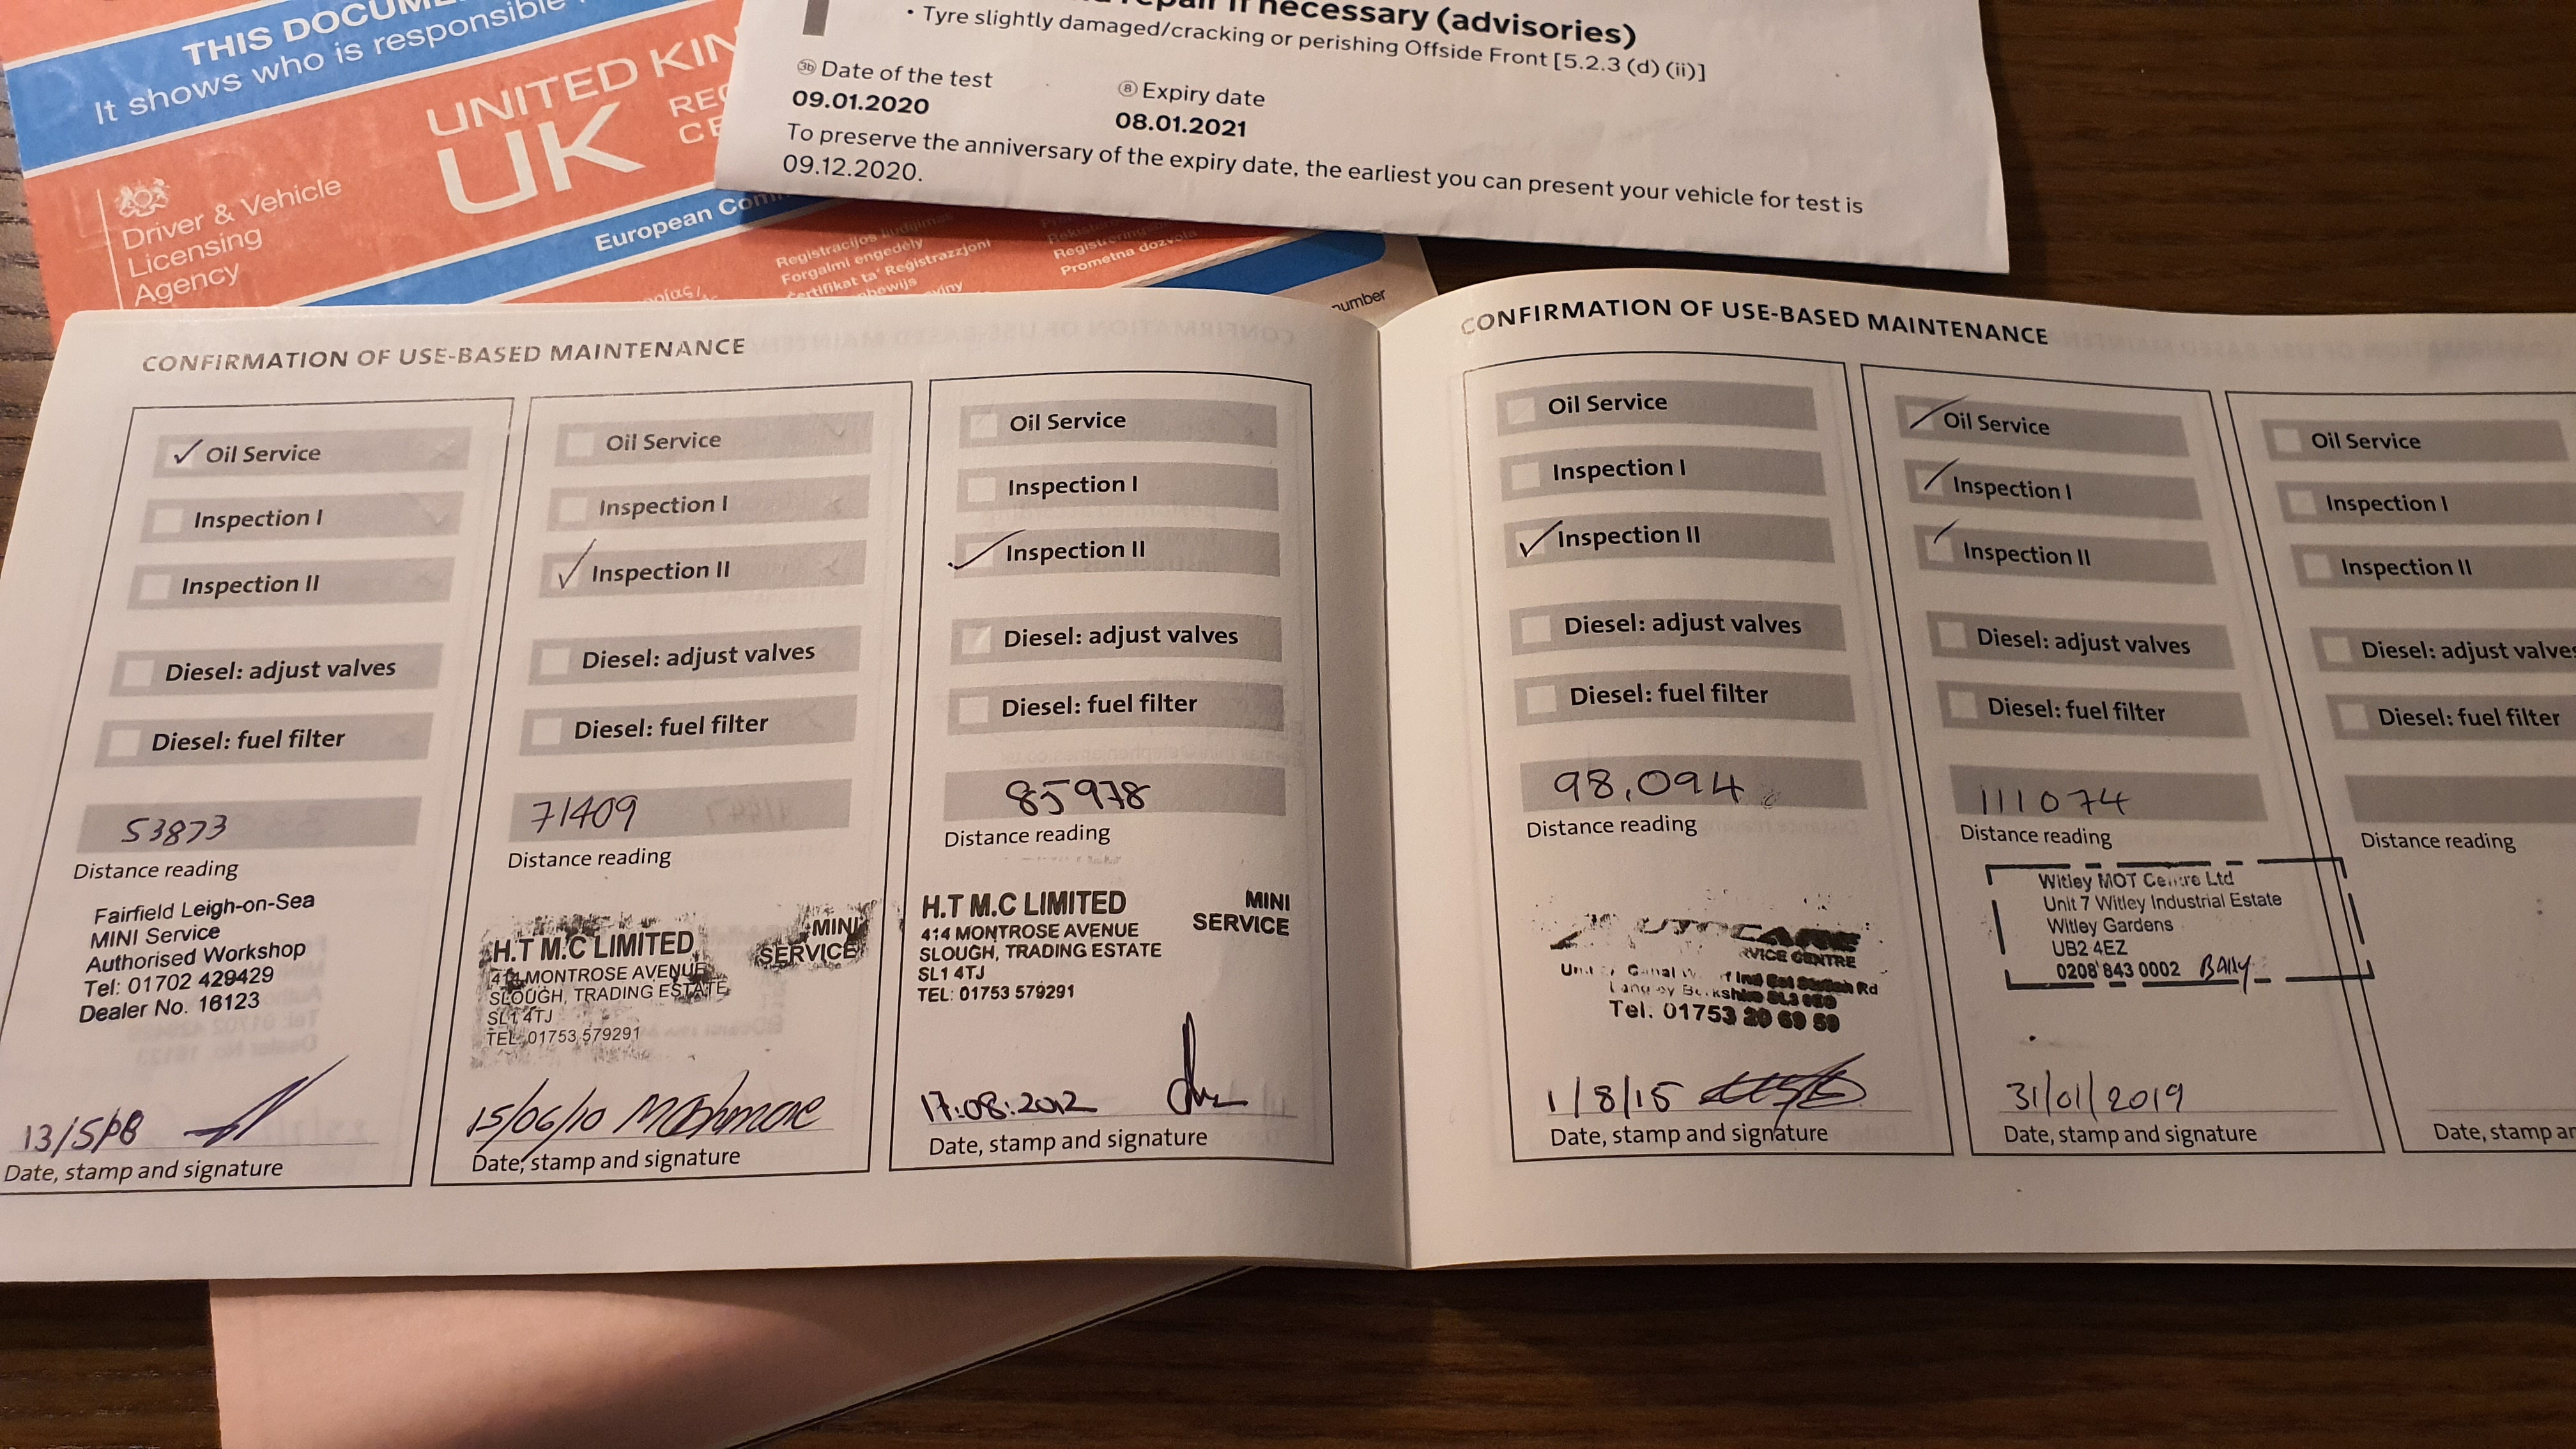 THIS DOCUM
It shows who is responsible
UNITED KIN
UK
REG
CE
Driver & Vehicle
Licensing
Agency
European Com
Registracijos liudijimas
Forgalmi engedély
Ċertifikat ta' Reġistrazzjoni
Prometna dozvola
number
repair if necessary (advisories)
• Tyre slightly damaged/cracking or perishing Offside Front [5.2.3 (d) (ii)]
3b Date of the test
09.01.2020
8 Expiry date
08.01.2021
To preserve the anniversary of the expiry date, the earliest you can present your vehicle for test is
09.12.2020.
CONFIRMATION OF USE-BASED MAINTENANCE
✓ Oil Service
Inspection I
Inspection II
Diesel: adjust valves
Diesel: fuel filter
53873
Distance reading
Fairfield Leigh-on-Sea
MINI Service
Authorised Workshop
Tel: 01702 429429
Dealer No. 16123
Date, stamp and signature
Oil Service
Inspection I
✓ Inspection II
Diesel: adjust valves
Diesel: fuel filter
71409
Distance reading
H.T M.C LIMITED
MINI
SERVICE
414 MONTROSE AVENUE
SLOUGH, TRADING ESTATE
SL1 4TJ
TEL: 01753 579291
15/06/10
Date, stamp and signature
Oil Service
Inspection I
✓ Inspection II
Diesel: adjust valves
Diesel: fuel filter
85978
Distance reading
H.T M.C LIMITED
MINI
SERVICE
414 MONTROSE AVENUE
SLOUGH, TRADING ESTATE
SL1 4TJ
TEL: 01753 579291
17:08:2012
Date, stamp and signature
CONFIRMATION OF USE-BASED MAINTENANCE
Oil Service
Inspection I
✓ Inspection II
Diesel: adjust valves
Diesel: fuel filter
98,094
Distance reading
RVICE CENTRE
Ind Est Station Rd
Tel. 01753 20 69 59
1/8/15
Date, stamp and signature
/ Oil Service
/ Inspection I
/ Inspection II
Diesel: adjust valves
Diesel: fuel filter
111074
Distance reading
Witley MOT Centre Ltd
Unit 7 Witley Industrial Estate
Witley Gardens
UB2 4EZ
0208 843 0002
31/01/2019
Date, stamp and signature
Oil Service
Inspection I
Inspection II
Diesel: adjust valves
Diesel: fuel filter
Distance reading
Date, stamp an